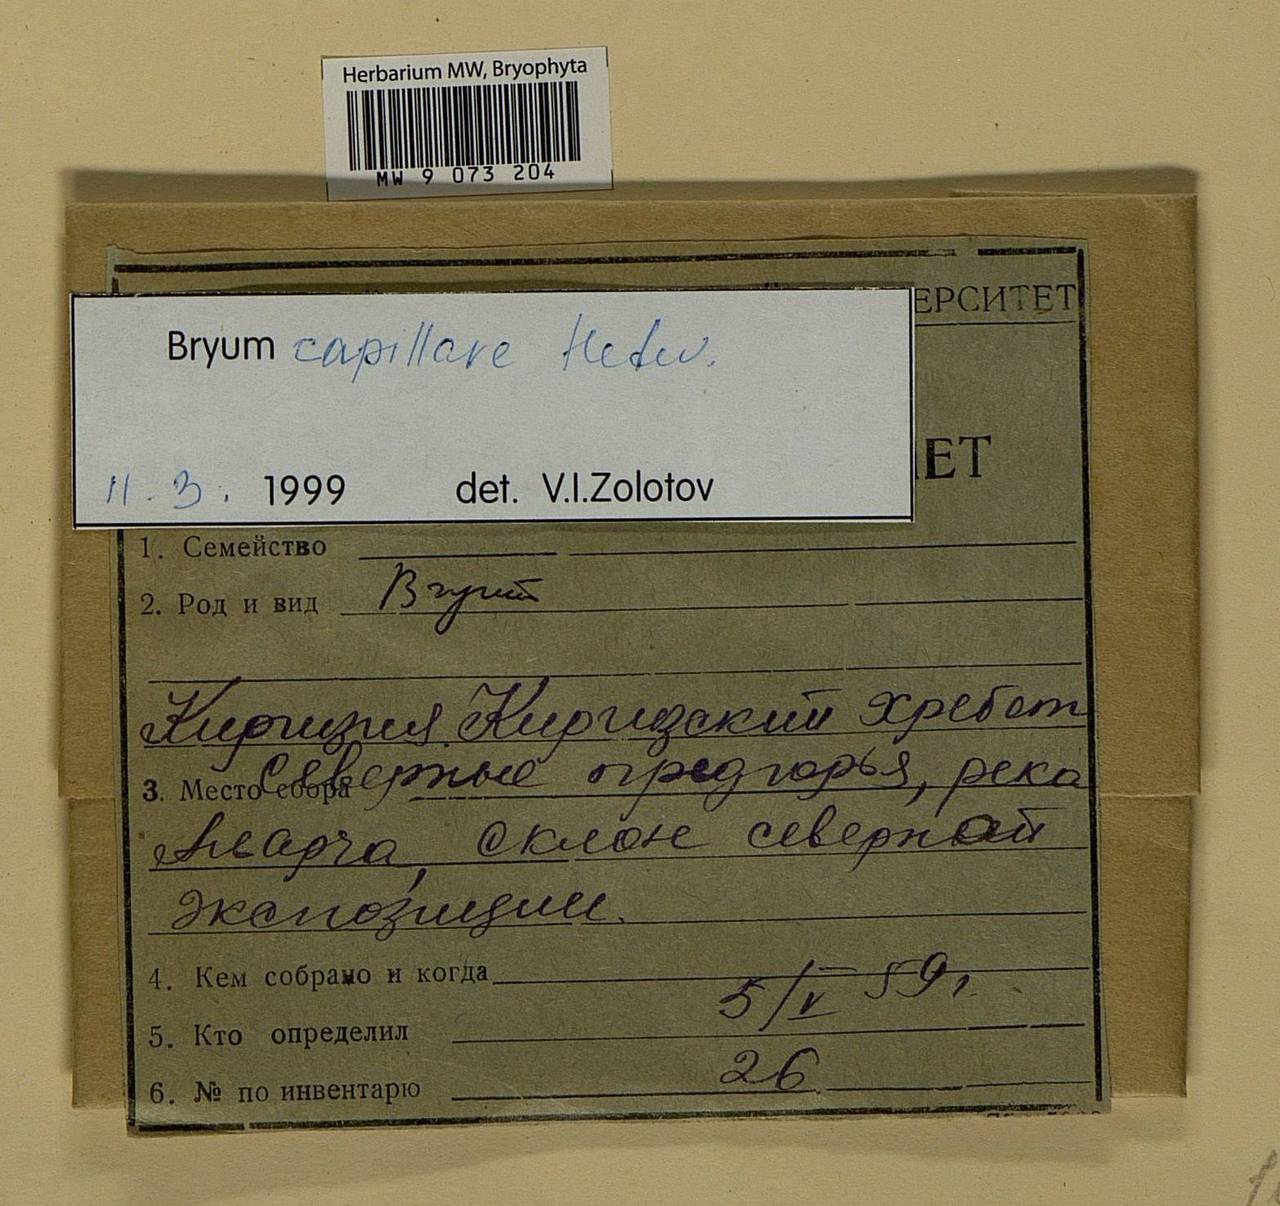 Herbarium MW, Bryophyta
MW 9 073 204
ЕРСИТЕТ
Bryum capillare Hedw.
ЕТ
11.3. 1999 det. V.I.Zolotov
1. Семейство
2. Род и вид Bryum
Киргизия. Киргизский хребет
Северные предгорья, река
3. Место сбора
Аларча, склон северной
экспозиции.
4. Кем собрано и когда
5/V 59 г.
5. Кто определил
26
6. № по инвентарю